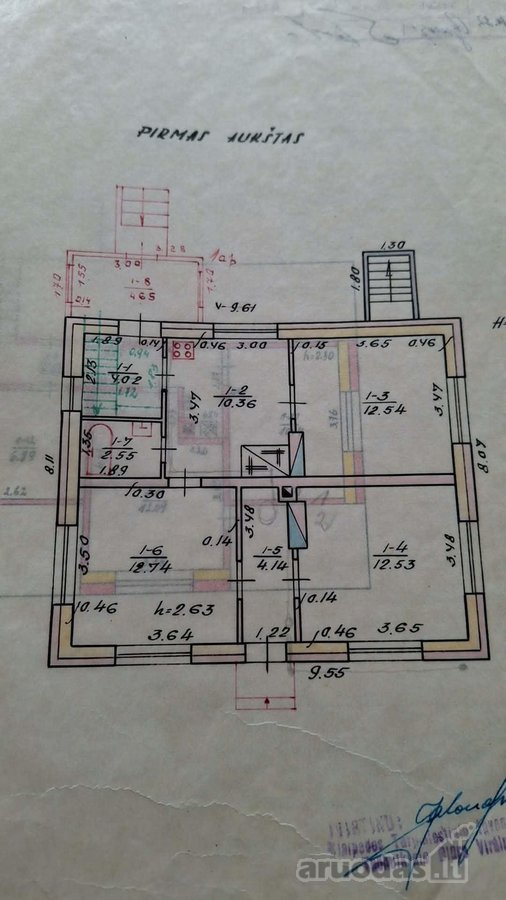 PIRMAS AUKŠTAS
1.30
1.80
3.00
3.28
1.70
1.55
1-8
4.65
1.70
V-9.61
1.89
0.14
0.46
3.00
0.15
3.65
0.46
0.94
2.13
1-1
4.02
1.72
1-2
10.36
3.47
h=2.30
3.76
1-3
12.54
3.47
1.35
1-7
2.55
1.89
8.11
8.07
2.62
0.30
3.50
1-6
12.74
0.14
3.48
1-5
4.14
1-4
12.53
3.48
0.46
h=2.63
0.14
3.64
1.22
0.46
3.65
9.55
H=
aruodas.lt